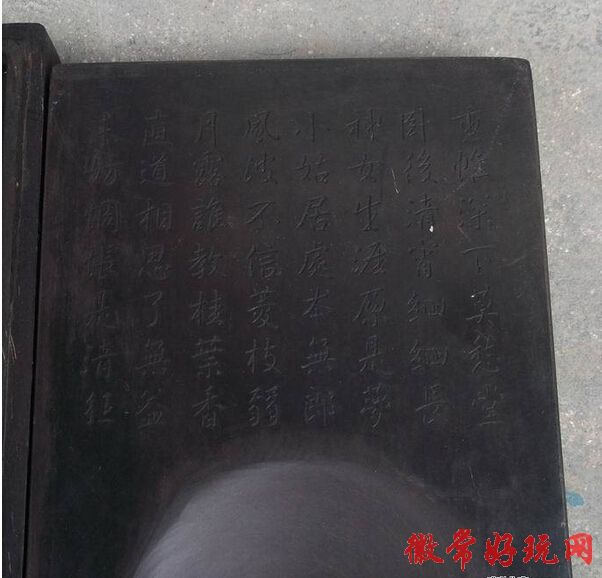 重帷深下莫愁堂
卧後清宵細細長
神女生涯原是夢
小姑居處本無郎
風波不信菱枝弱
月露誰教桂葉香
直道相思了無益
未妨惆悵是清狂
徽常好玩网